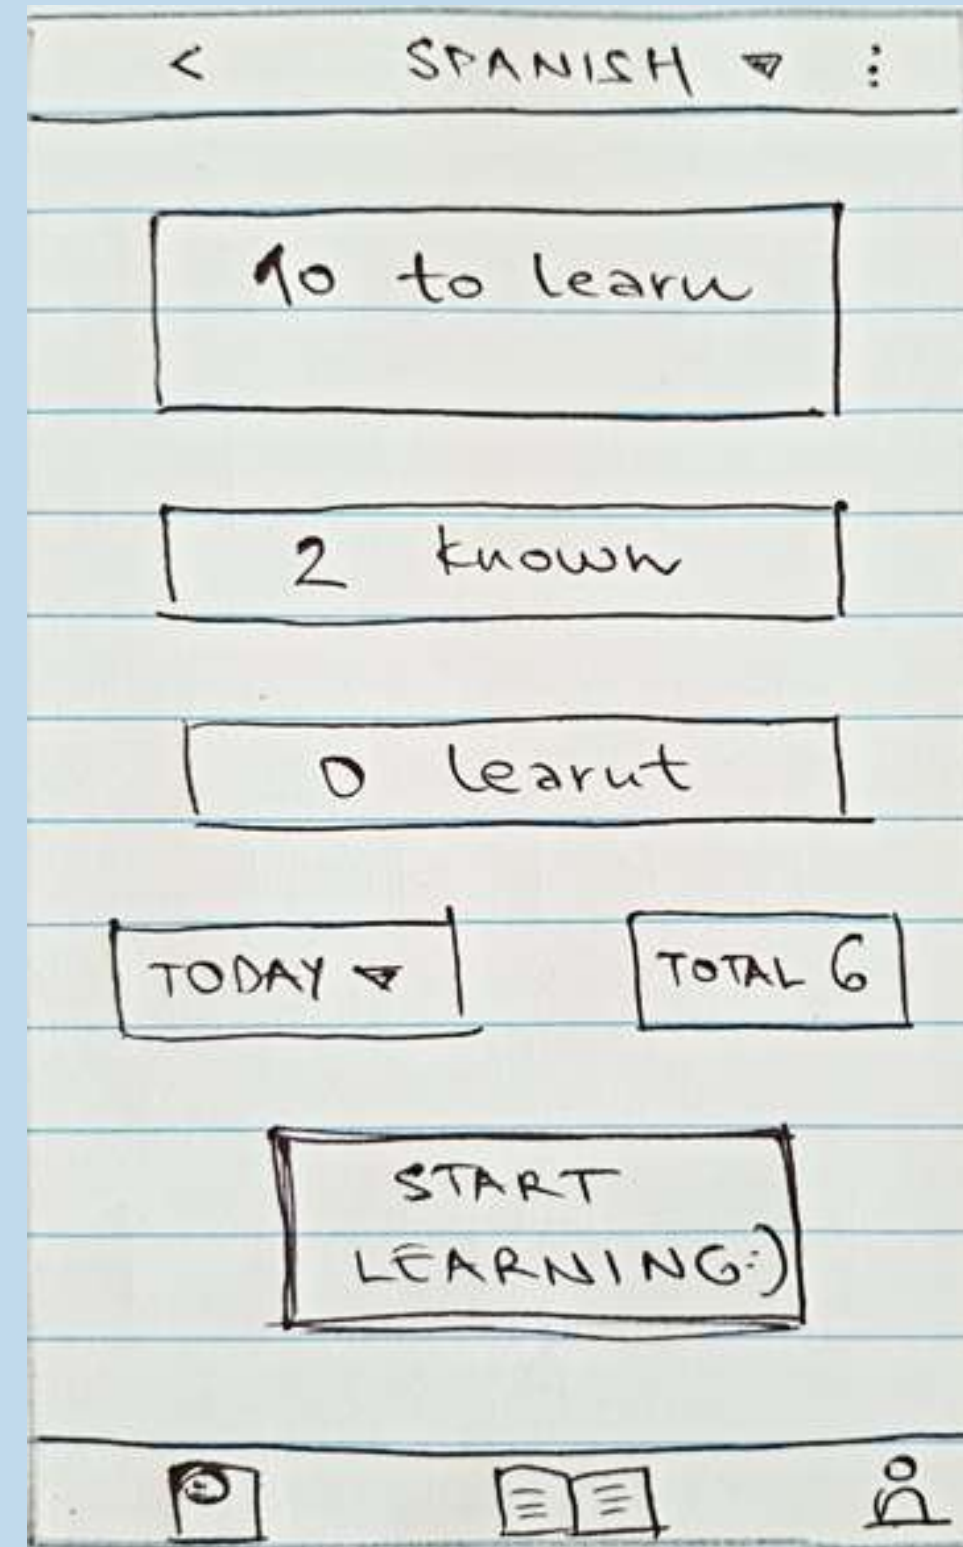 < SPANISH
10 to learn
2 known
0 learnt
TODAY
TOTAL 6
START
LEARNING:)